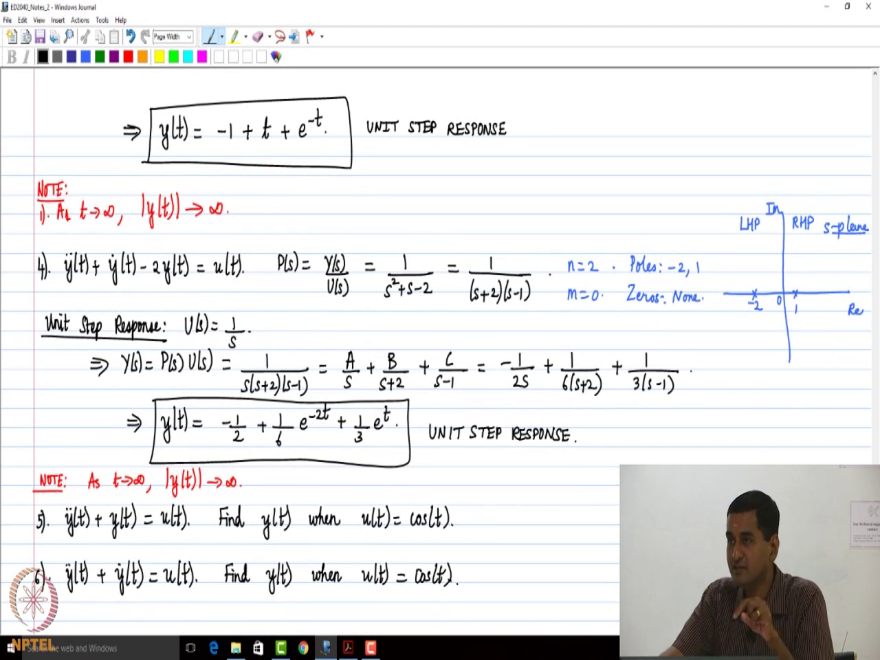 ED2040_Notes_2 - Windows Journal
File Edit View Insert Actions Tools Help
Page Width
B I
⇒ y(t) = -1 + t + e^-t. UNIT STEP RESPONSE
NOTE:
1). As t→∞, |y(t)| → ∞.
Im
LHP RHP s-plane
-2 0 1 Re
4). ÿ(t) + ẏ(t) - 2y(t) = u(t). P(s) = Y(s)/U(s) = 1/(s²+s-2) = 1/((s+2)(s-1)). n=2. Poles: -2, 1
m=0. Zeros: None.
Unit Step Response: U(s) = 1/s.
⇒ Y(s) = P(s) U(s) = 1/(s(s+2)(s-1)) = A/s + B/(s+2) + C/(s-1) = -1/2s + 1/6(s+2) + 1/3(s-1).
⇒ y(t) = -1/2 + 1/6 e^-2t + 1/3 e^t. UNIT STEP RESPONSE.
NOTE: As t→∞, |y(t)| → ∞.
5). ÿ(t) + y(t) = u(t). Find y(t) when u(t) = cos(t).
6). ÿ(t) + ẏ(t) = u(t). Find y(t) when u(t) = cos(t).
NPTEL
the web and Windows